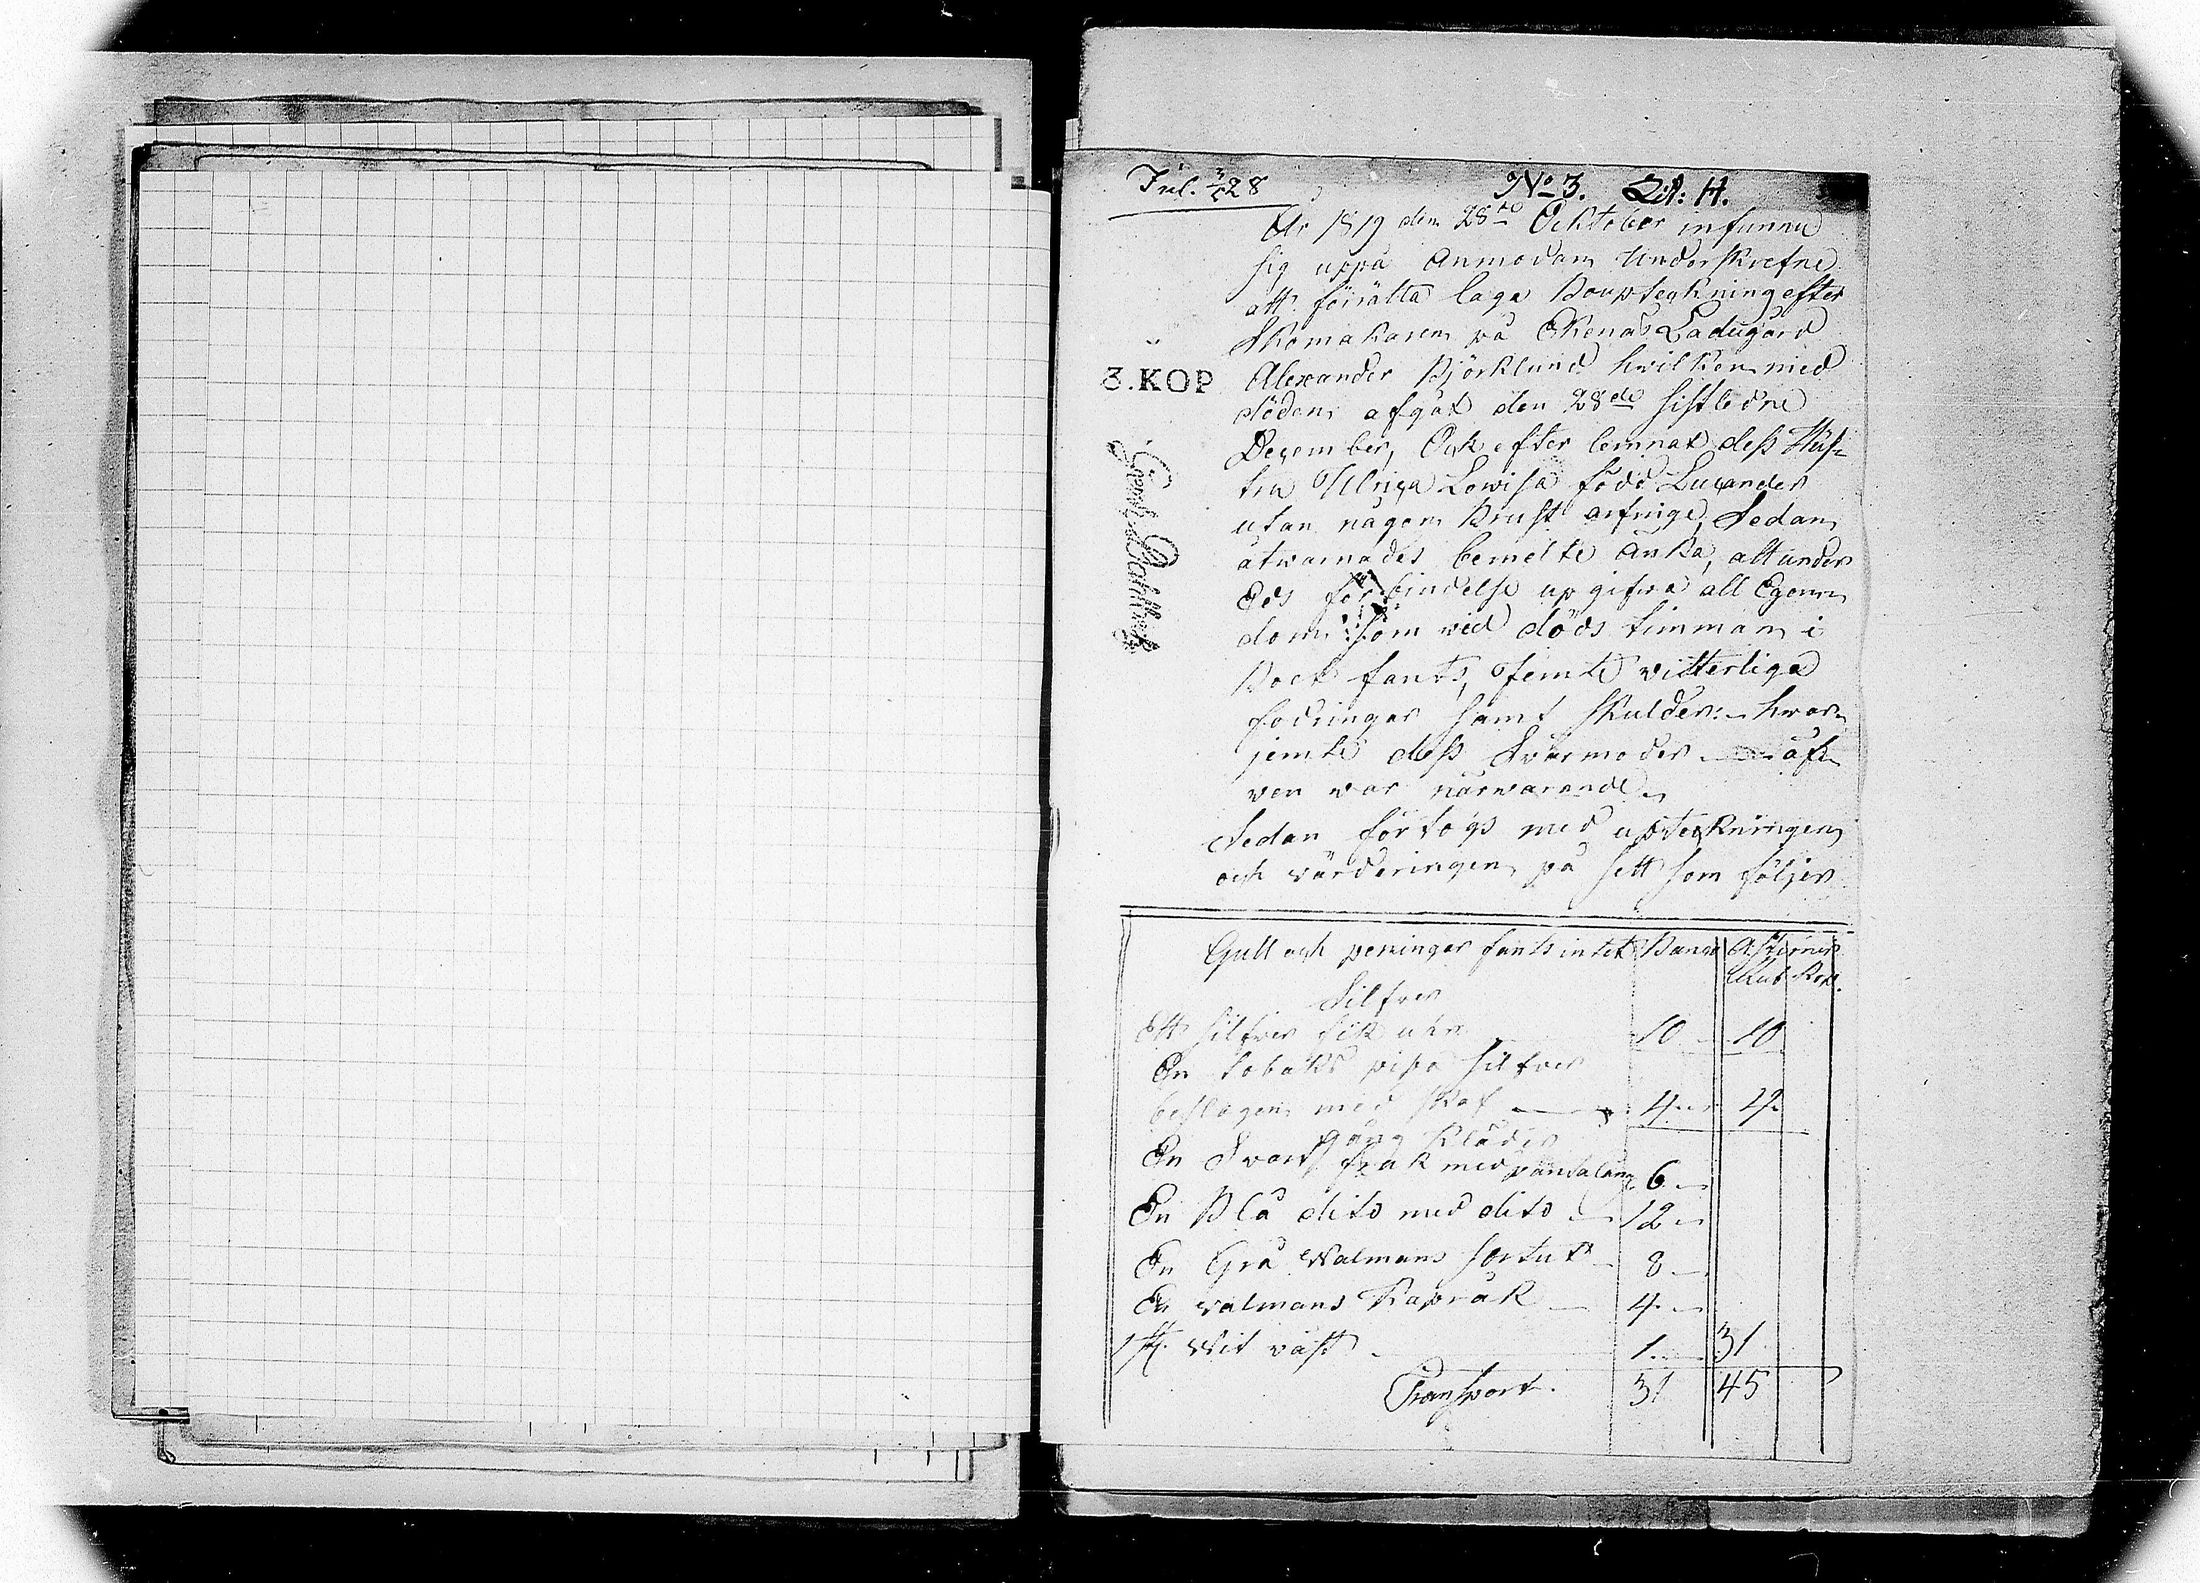 Inl. 3/5 28
No 3. Lit: H.
År 1819 den 28de Ocktober infunno
sig uppå anmodan Underskrefne
att förrätta laga Boupteckning efter
Skomakaren på Ekenäs Ladugård
3.KOP
Alexander Björklund hvilken med
döden afgåt den 28de sistledne
December, Ock efter lemnat dess Hus-
tru Ulrica Lowisa född Lucander
utan någon Brust arfinge, Sedan
åtwarnades bemelte Änka, alt under
Eds förbindelse upgifva all Egen-
dom som wid döds timman i
Boet fants, jemte vitterliga
fodringar samt skulder: hvar-
jemte dess Svärmoder äf-
ven war närwarande
Sedan förtogs med upteckningen
och värderingen på sett som följer
Gull och peningar fants intet Banco
Rub Kop.
Silfver
Ett silfver fik uhr 10 10
En tobaks pipa silfver
beslagen med skaf 4 4
Gång Kläder
En Svart frak med pantalong 6
En Blå dito med dito 12
En Grå Walmans sortut 8
En valmans Kapråk 4
1 st. Wit väst 1. 31
Transport. 31 45